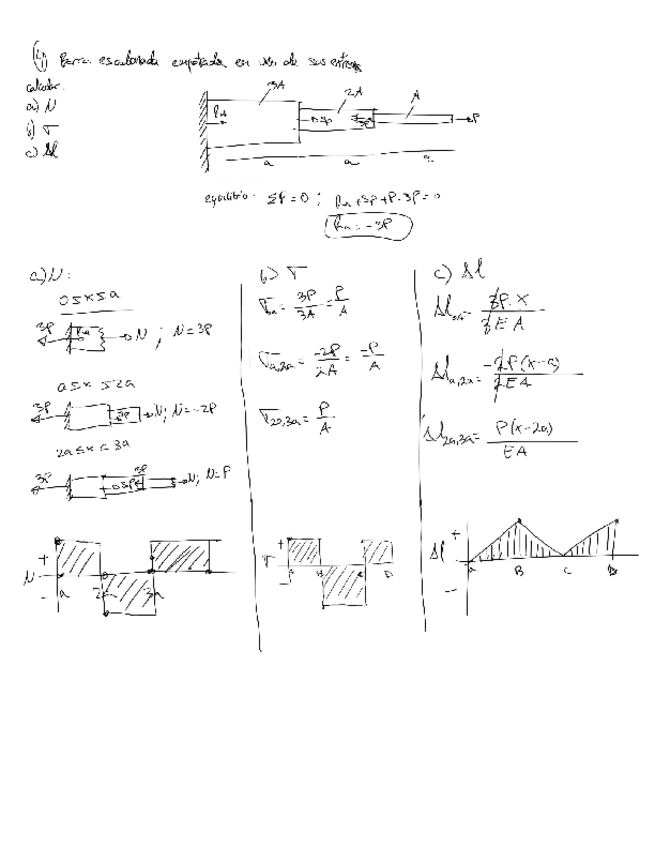 Barra escalonada empotrada en uno de sus extremos
calcular:
a) N
b) σ
c) Δl
3A
2A
A
5P
3P
P
a a a
equilibrio: ΣF=0 ; Ra+5P+P-3P=0
Ra=-3P
a) N:
0≤x≤a
3P N ; N=3P
a≤x≤2a
3P 5P N; N=-2P
2a≤x≤3a
3P 5P 3P N; N=P
N + - a 2a 3a
b) σ
= 3P/3A = P/A
σa,2a = -2P/2A = -P/A
σ2a,3a = P/A
σ + -
c) Δl
= 3P·x/3EA
Δla,2a = -2P(x-a)/2EA
Δl2a,3a = P(x-2a)/EA
Δl + -
B C D